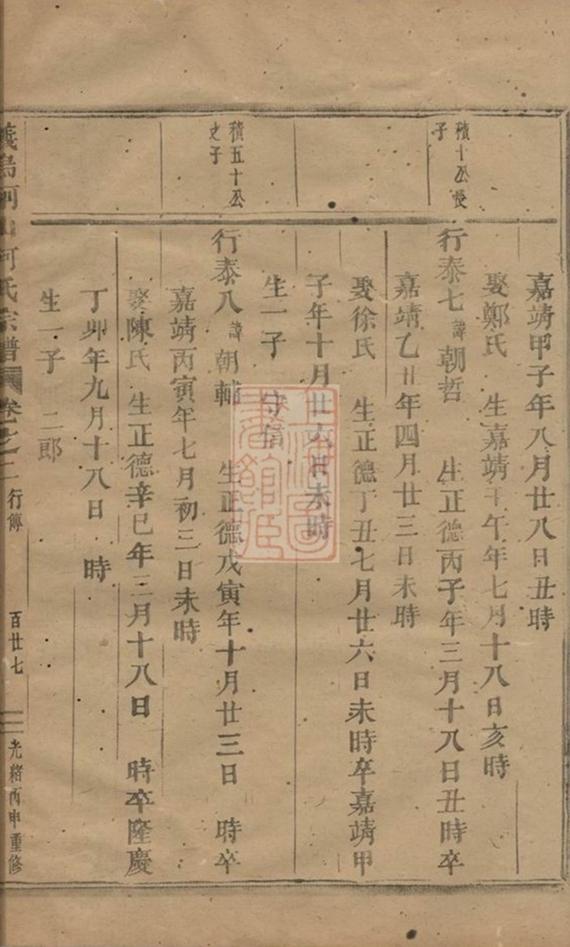 嘉靖甲子年八月廿八日丑時
娶鄭氏 生嘉靖壬午年七月十八日亥時
積十公長子
行泰七諱朝哲 生正德丙子年三月十八日丑時卒
嘉靖乙丑年四月廿三日未時
娶徐氏 生正德丁丑七月廿六日未時卒嘉靖甲
子年十月廿六日未時
生一子 守
積五十公之子
行泰八諱朝輔 生正德戊寅年十月廿三日 時卒
嘉靖丙寅年七月初三日未時
娶陳氏 生正德辛巳年三月十八日 時卒隆慶
丁卯年九月十八日 時
生一子 二郎
義烏河 何氏宗譜 卷之二 行傳 百廿七 光緒丙申重修
上海圖書館藏